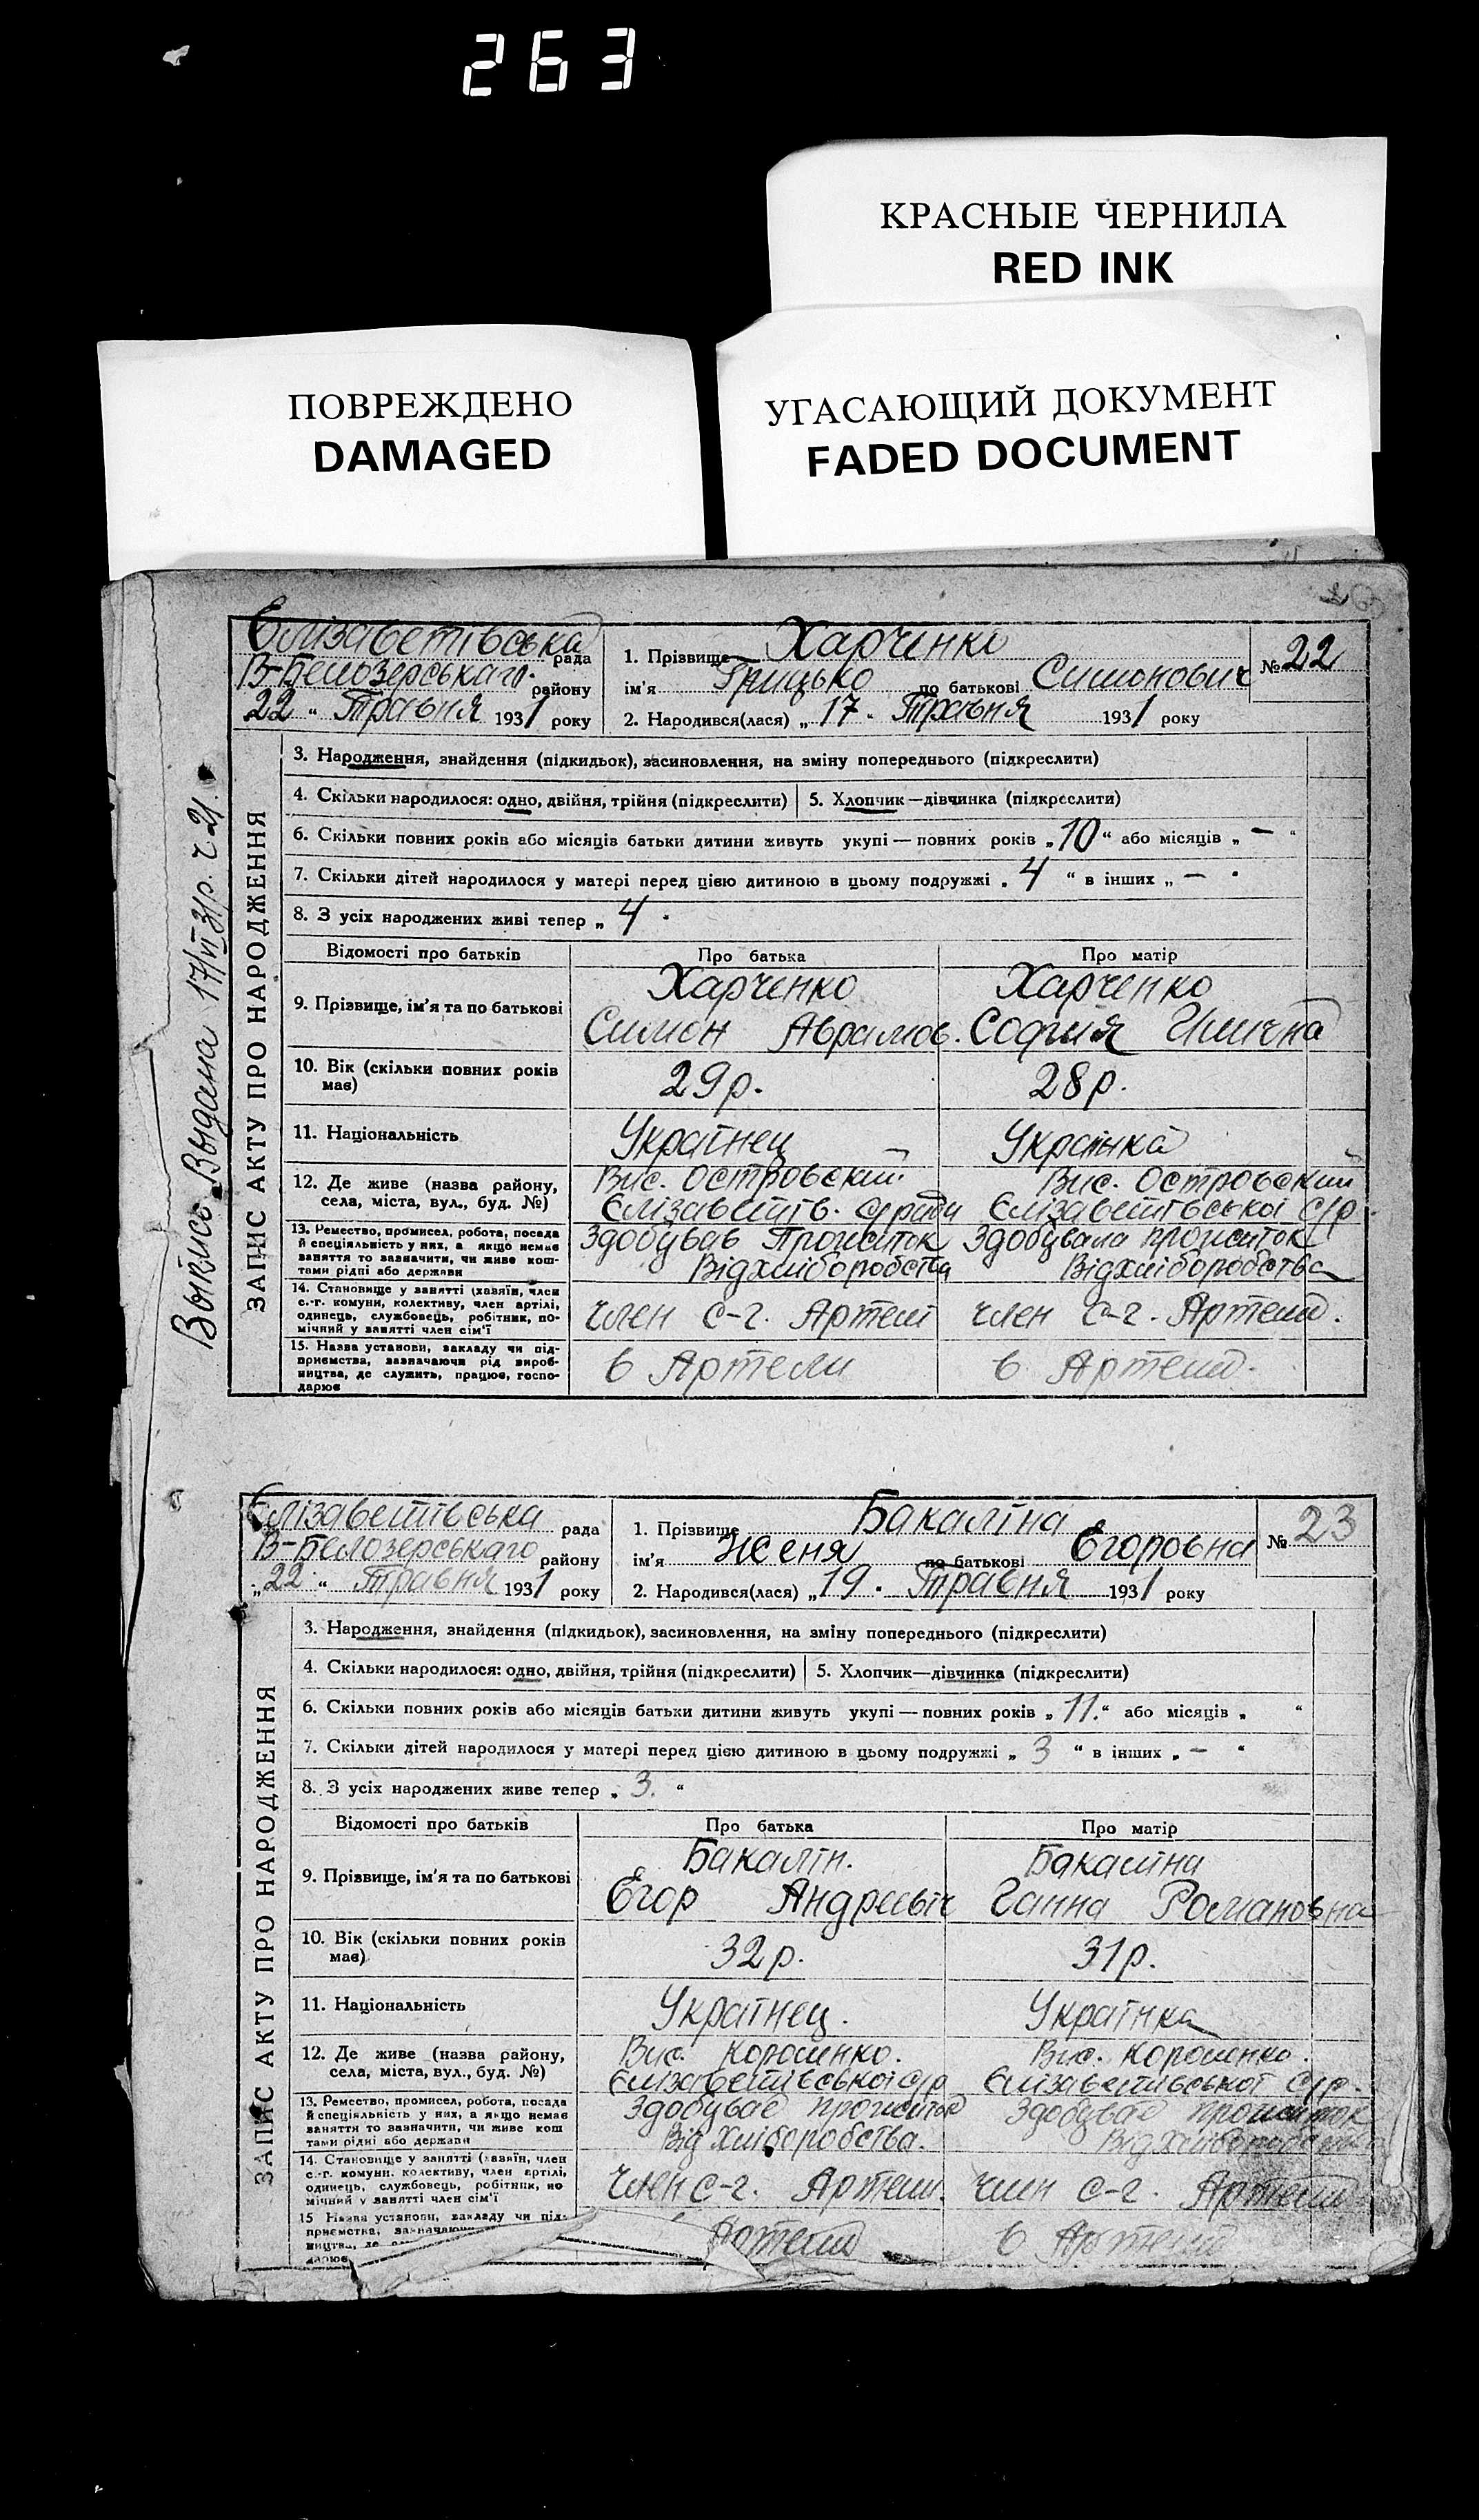 263
КРАСНЫЕ ЧЕРНИЛА
RED INK
ПОВРЕЖДЕНО
DAMAGED
УГАСАЮЩИЙ ДОКУМЕНТ
FADED DOCUMENT
Выпись Выдана 17/VI 31р. ч 21.
Єлізаветівська рада
В-Белозерськаго району
22 " Травня 1931 року
1. Прізвище Харченко
ім'я Грицько по батькові Симонович
2. Народився(лася) „ 17 " Травня 1931 року
№ 22
ЗАПИС АКТУ ПРО НАРОДЖЕННЯ
3. Народження, знайдення (підкидьок), засиновлення, на зміну попереднього (підкреслити)
4. Скільки народилося: одно, двійня, трійня (підкреслити) 5. Хлопчик—дівчинка (підкреслити)
6. Скільки повних років або місяців батьки дитини живуть укупі — повних років „ 10 “ або місяців „ — “
7. Скільки дітей народилося у матері перед цією дитиною в цьому подружжі „ 4 “ в інших „ — "
8. З усіх народжених живі тепер „ 4 "
Відомості про батьків Про батька Про матір
9. Прізвище, ім'я та по батькові
Харченко Харченко
Симон Аврамов. София Илична
10. Вік (скільки повних років має) 29р. 28р.
11. Національність Українец Українка
12. Де живе (назва району, села, міста, вул., буд. №)
Вис. Островский Вис. Островский
Єлізаветів. с/ради Єлізаветівської с/р.
13. Ремество, промисел, робота, посада
й спеціяльність у них, а якщо немає
заняття то зазначити, чи живе кош-
тами рідні або держави
Здобував Прожиток Здобувала прожиток
Відхліборобства Відхліборобства
14. Становище у занятті (хазяїн, член
с.-г. комуни, колективу, член артілі,
одинець, службовець, робітник, по-
мічний у занятті член сім'ї
член с-г. Артели член с-г. Артели.
15. Назва установи, закладу чи під-
приємства, зазначаючи рід вироб-
ництва, де служить, працює, госпо-
дарює
в Артели в Артели.
Єлізаветівська рада
В-Белозерськаго району
„ 22 “ Травня 1931 року
1. Прізвище Бакаліна
ім'я Женя по батькові Єгоровна
2. Народився(лася) „ 19. Травня 1931 року
№ 23
ЗАПИС АКТУ ПРО НАРОДЖЕННЯ
3. Народження, знайдення (підкидьок), засиновлення, на зміну попереднього (підкреслити)
4. Скільки народилося: одно, двійня, трійня (підкреслити) 5. Хлопчик—дівчинка (підкреслити)
6. Скільки повних років або місяців батьки дитини живуть укупі — повних років „ 11. “ або місяців „ “
7. Скільки дітей народилося у матері перед цією дитиною в цьому подружжі „ 3 “ в інших „ — “
8. З усіх народжених живе тепер „ 3. “
Відомості про батьків Про батька Про матір
9. Прізвище, ім'я та по батькові
Бакалін. Бакаліна
Єгор Андреевіч Ганна Романовна
10. Вік (скільки повних років має) 32р. 31р.
11. Національність Українец. Українка
12. Де живе (назва району, села, міста, вул., буд. №)
Вис. Короленко. Вис. Короленко.
Єлізаветівської с/р Єлізаветівської с/р.
13. Ремество, промисел, робота, посада
й спеціяльність у них, а якщо немає
заняття то зазначити, чи живе кош
тами рідні або держави
Здобував прожиток Здобував прожиток
Від хліборобства. Відхліборобства
14. Становище у занятті (хазяїн, член
с.-г. комуни, колективу, член артілі,
одинець, службовець, робітник, по
мічний у занятті член сім'ї
Член с-г. Артели. член с-г. Артели
15 Назва установи, закладу чи під-
приємства, зазначаючи
ництва, де
дарює
Артели в Артели